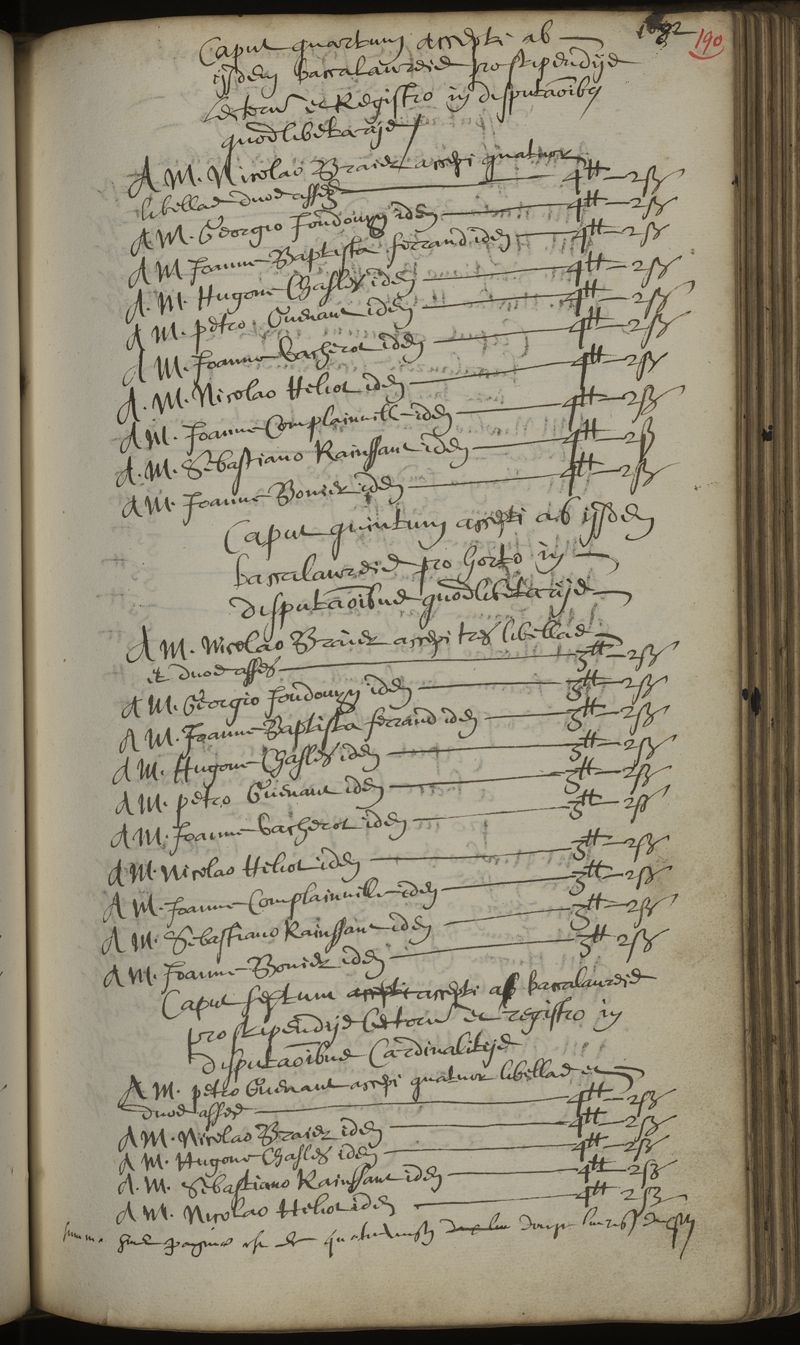 190
Caput quartum accepti ab
ijsdem baccalaureis pro stipendijs
lectorum et Registro in disputaoibus
quodlibetarijs
A M. Nicolao Braier accepi quatuor
libellas duos asses 4tt 2ß
A M. Georgio Jondouyn idem 4tt 2ß
A M Joanne Baptista Ferrand idem 4tt 2ß
A. M. Hugone Chasles idem 4tt 2ß
A M. petro Guenaut idem 4tt 2ß
A M. Joanne Vacherot idem 4tt 2ß
A. M. Nicolao Heliot idem 4tt 2ß
A M. Joanne Complainville idem 4tt 2ß
A. M. Sebastiano Rainssant idem 4tt 2ß
A M. Joanne Bonier idem 4tt 2ß
Caput quintum accepti ab ijsdem
baccalaureis pro horto in
disputaoibus quodlibetarijs
A M. Nicolao Braier accepi tres libellas
et duos asses 3tt 2ß
A M. Georgio Jondouyn idem 3tt 2ß
A M. Joanne Baptista Ferrand idem 3tt 2ß
A M. Hugone Chasles idem 3tt 2ß
A M. petro Guenaut idem 3tt 2ß
A M. Joanne Vacherot idem 3tt 2ß
A M. Nicolao Heliot idem 3tt 2ß
A M. Joanne Complainville idem 3tt 2ß
A M. Sebastiano Rainssant idem 3tt 2ß
A M. Joanne Bonier idem 3tt 2ß
Caput sextum accepti accepti ab baccalaureis
pro stipendijs lectorum et registro in
disputaoibus Cardinalitijs
A M. petro Guenaut accepi quatuor libellas et
duos asses 4tt 2ß
A M. Nicolao Braier idem 4tt 2ß
A M. Hugone Chasles idem 4tt 2ß
A. M. Sebastiano Rainssant idem 4tt 2ß
A M. Nicolao Heliot idem 4tt 2ß
Summa huius paginae est de